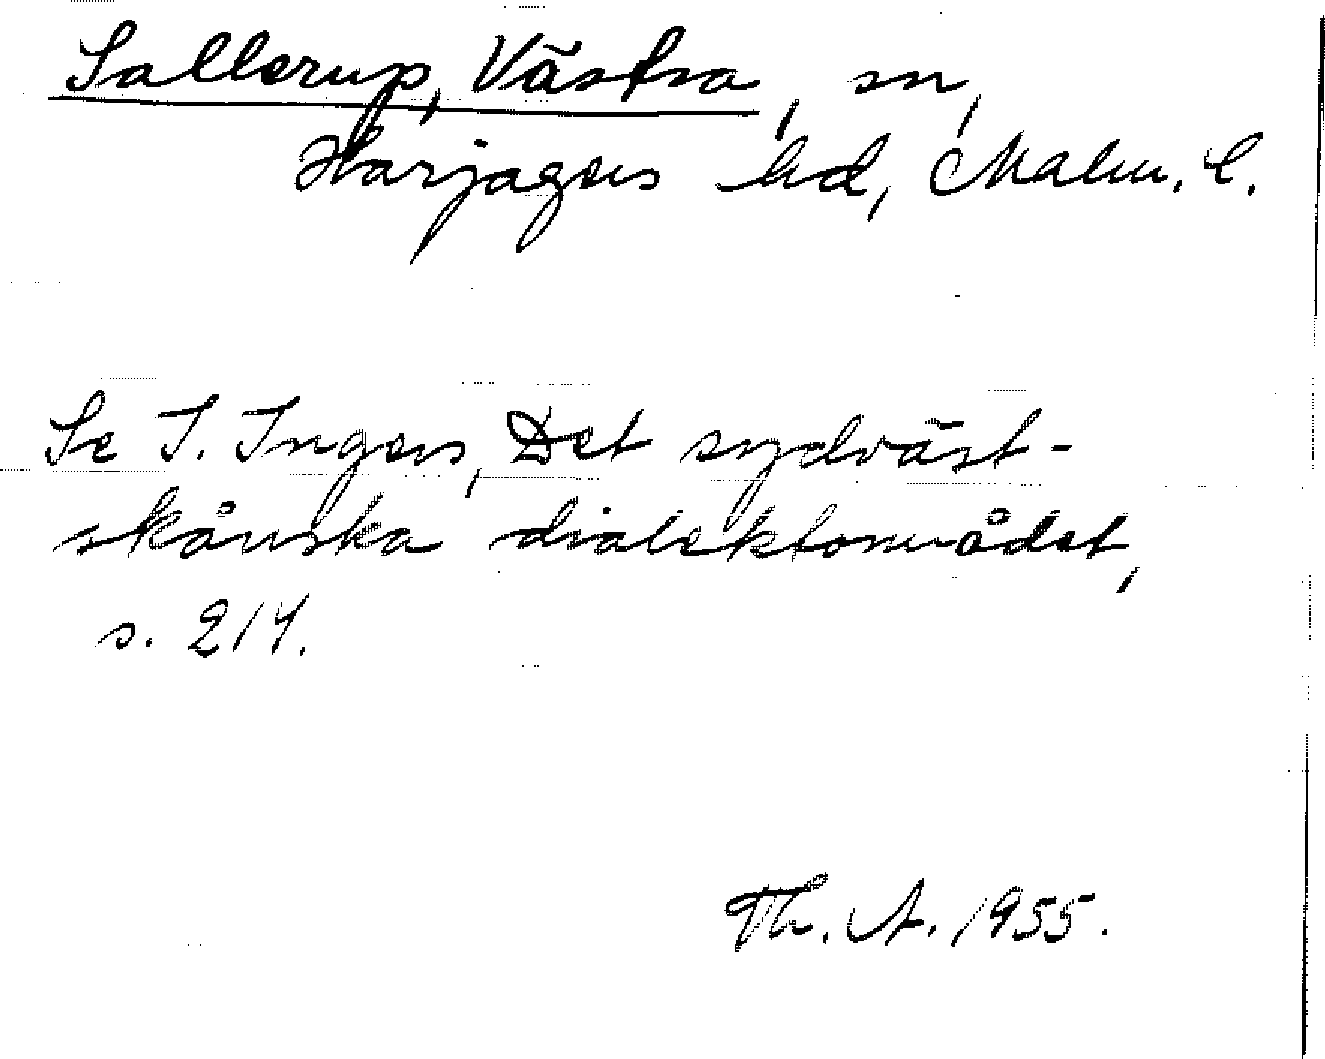 Sallerup, Västra, sn,
Harjagers hd, Malm. l.
Se I. Ingers, Det sydväst-
skånska dialektområdet,
s. 214.
Th. A. 1955.